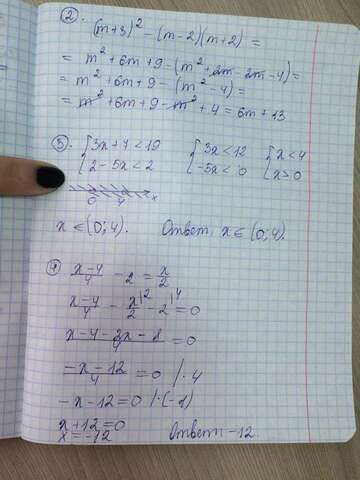 2.
(m+3)² - (m-2)(m+2) =
= m² + 6m + 9 - (m² + 2m - 2m - 4) =
= m² + 6m + 9 - (m² - 4) =
= m² + 6m + 9 - m² + 4 = 6m + 13
3. { 3x + 7 < 19 { 3x < 12 { x < 4
{ 2 - 5x < 2 { -5x < 0 { x > 0
0 4 x
x ∈ (0; 4). Ответ: x ∈ (0; 4).
4) (x-4)/4 - 2 = x/2
(x-4)/4 - x/2 |² - 2 |⁴ = 0
(x - 4 - 2x - 8)/4 = 0
(-x - 12)/4 = 0 / · 4
-x - 12 = 0 / · (-1)
x + 12 = 0
x = -12 Ответ -12.